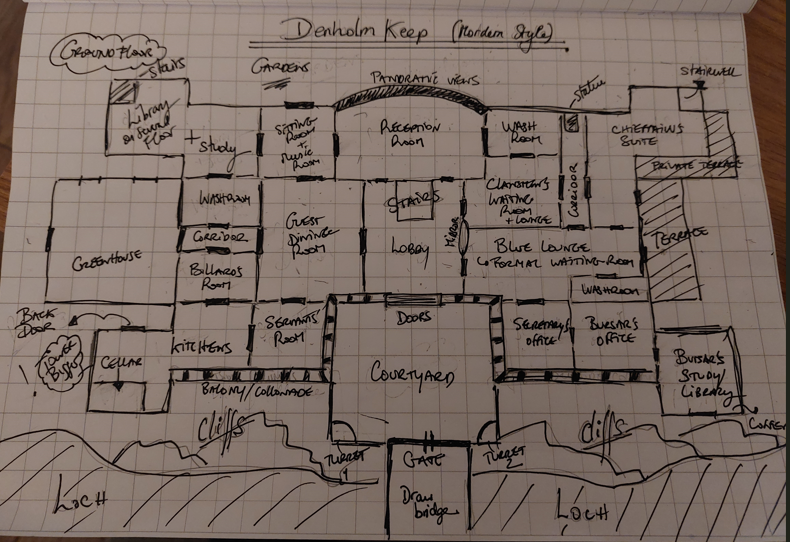 Denholm Keep (Mordern Style)
GROUND FLOOR
STAIRS
GARDENS
PANORAMIC VIEWS
Statue
STAIRWELL
Library
on second
FLOOR
+ Study
SITTING
ROOM
+
MUSIC
ROOM
RECEPTION
ROOM
WASH
ROOM
CORRIDOR
CHIEFTAIN'S
SUITE
PRIVATE TERRACE
WASHROOM
CORRIDOR
BILLARDS
ROOM
GREENHOUSE
GUEST
DINING
ROOM
STAIRS
LOBBY
MIRROR
CLANSMEN'S
WAITING
ROOM
+ LOUNGE
BLUE LOUNGE
FORMAL WAITING-ROOM
TERRACE
WASHROOM
BACK
DOOR
CELLAR
KITCHENS
SERVANTS'
ROOM
DOORS
COURTYARD
SECRETARY'S
OFFICE
BURSAR'S
OFFICE
BURSAR'S
STUDY/
LIBRARY
BALCONY/COLONNADE
Cliffs
Cliffs
TURRET
1
GATE
TURRET
2
LOCH
Draw
bridge
LOCH